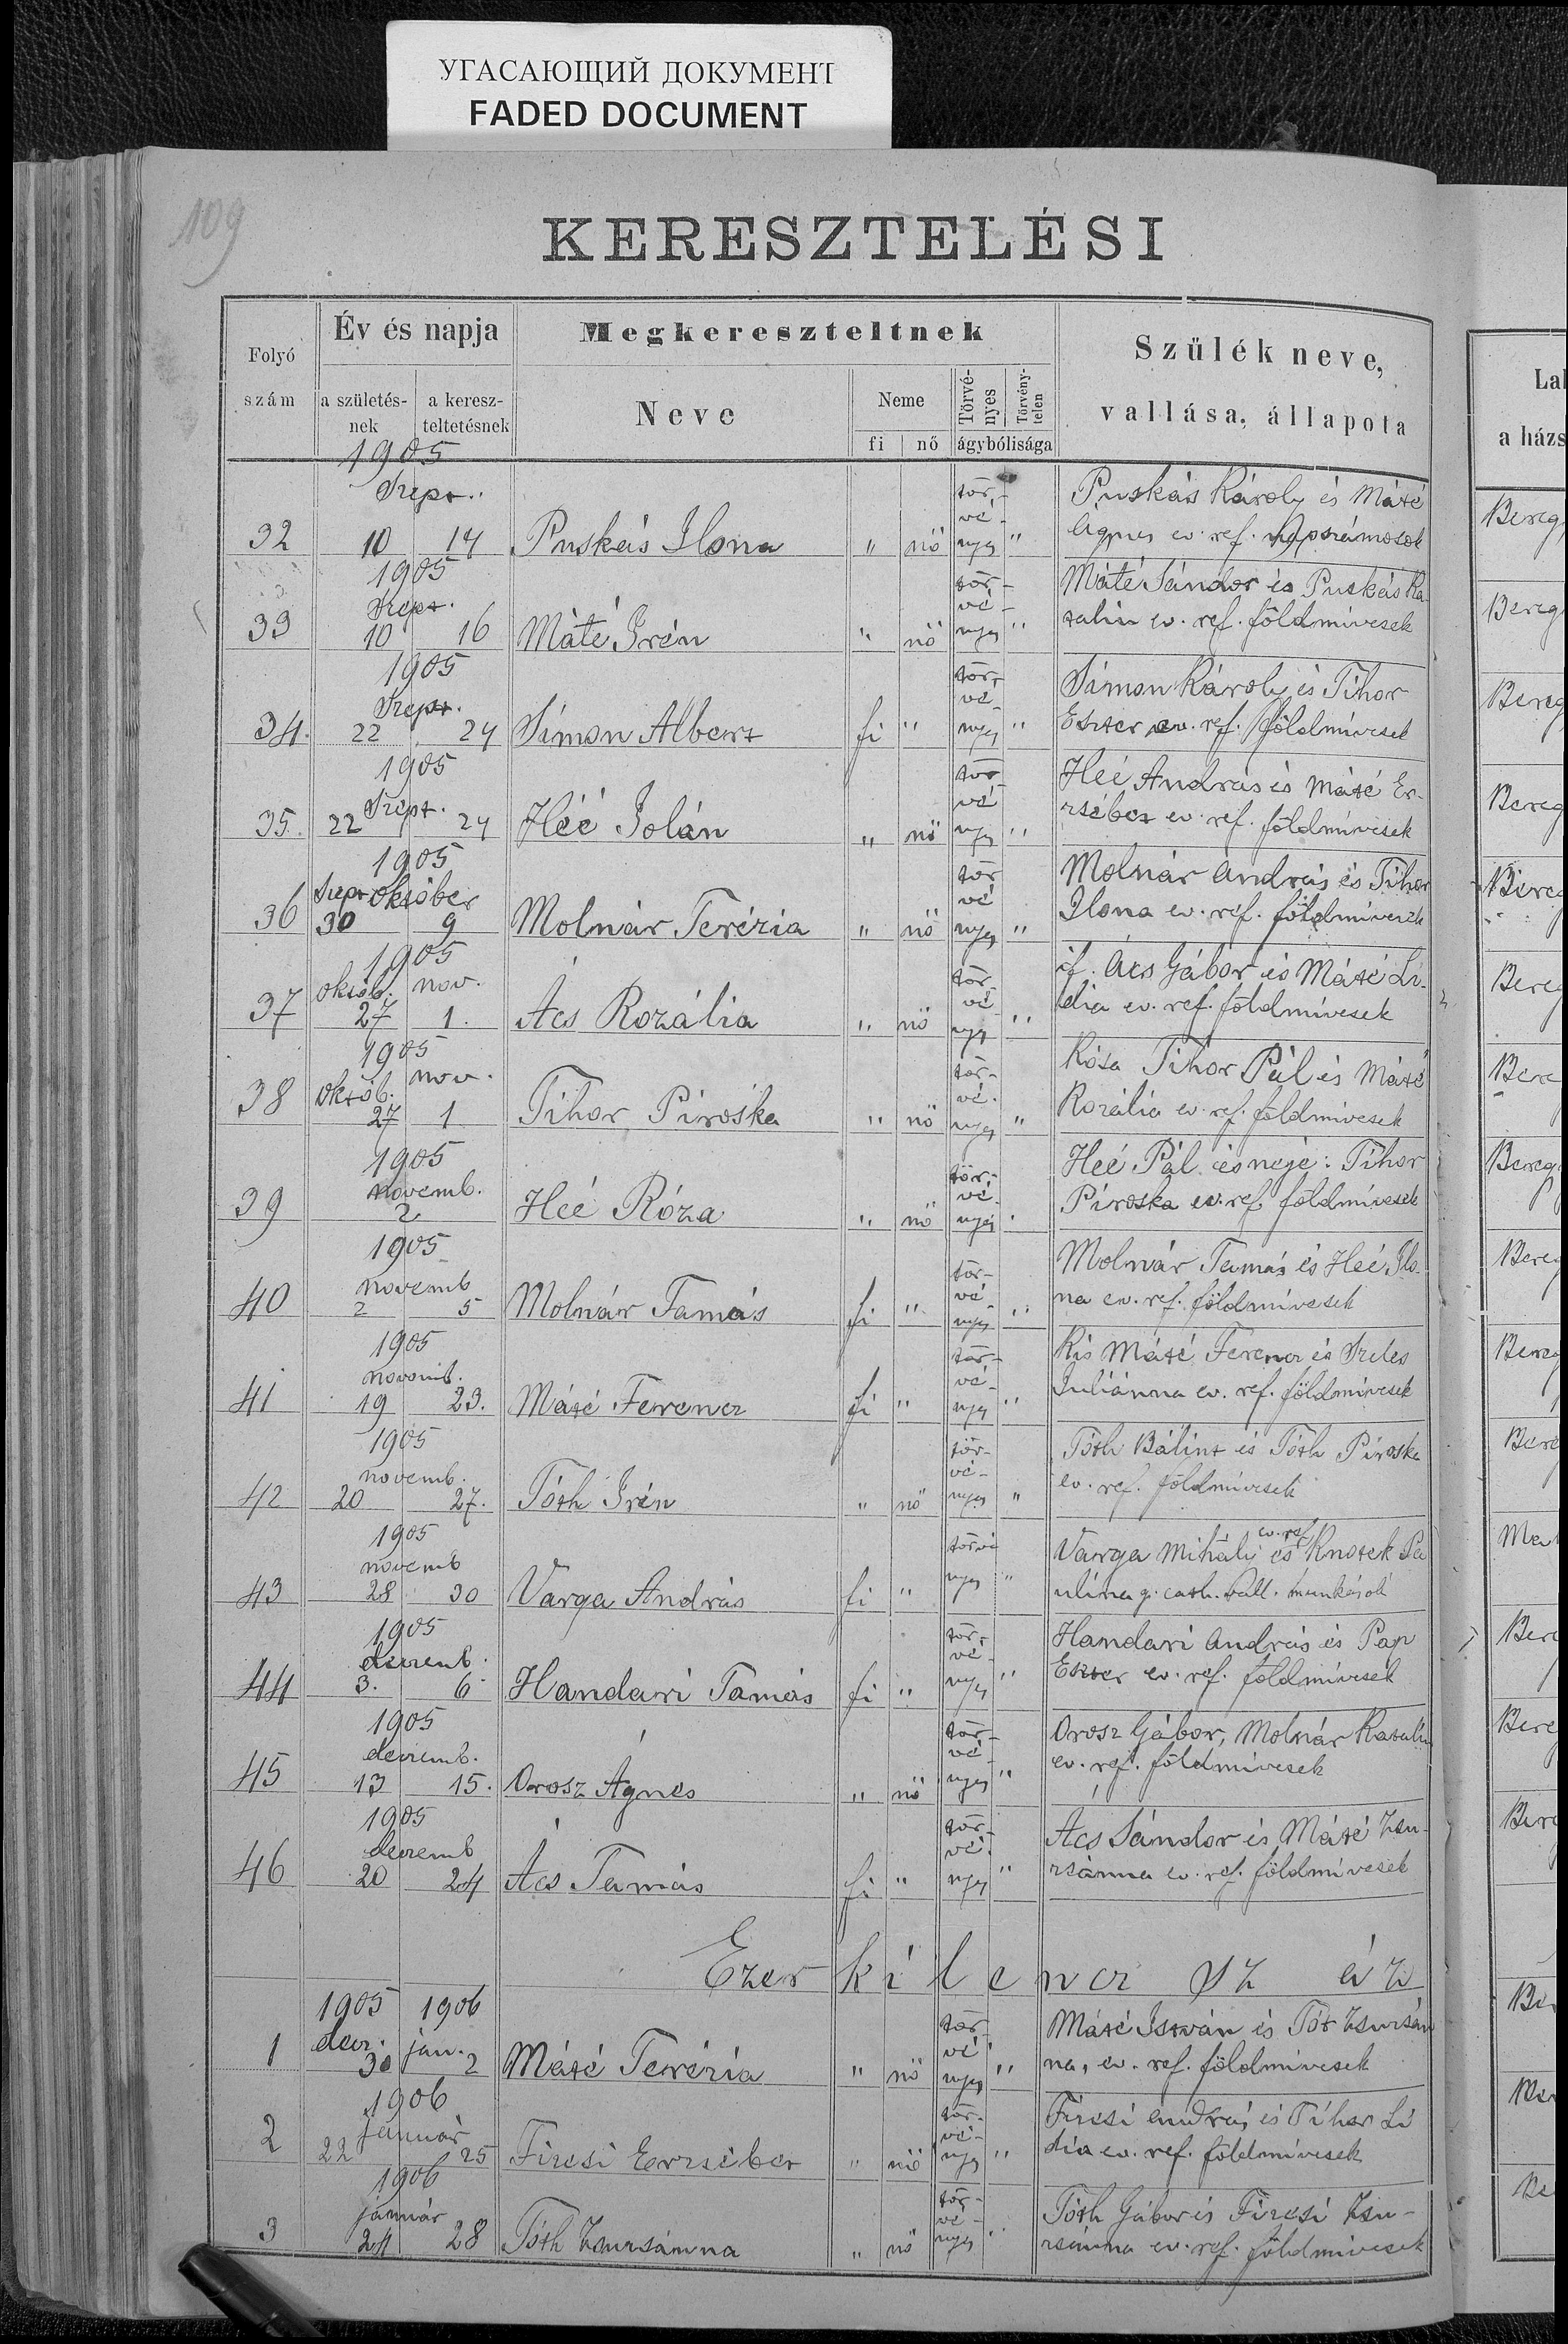 УГАСАЮЩИЙ ДОКУМЕНТ
FADED DOCUMENT
109
KERESZTELÉSI
Folyó szám
Év és napja
a születés-nek
a keresz-teltetésnek
Megkereszteltnek
Neve
Neme
fi nő
Törvé-nyes
Törvény-telen
ágybólisága
Szülék neve,
vallása, állapota
Lal
a házs
1905
Szept.
32 10 14 Puskás Ilona " nő tör-vé-nyes " Puskás Károly és Máté
Ágnes ev. ref. napszámosok
Bereg
1905
Szept.
33 10 16 Máté Irén " nő tör-vé-nyes " Máté Sándor és Puskás Ka-
talin ev. ref. földmívesek
Bereg
1905
Szept.
34. 22 24 Simon Albert fi " tör-vé-nyes " Simon Károly és Tihor
Eszter ev. ref. földmívesek
Bereg
1905
Szept.
35. 22 24 Héé Jolán " nő tör-vé-nyes " Héé András és Máté Er-
zsébet ev. ref. földmívesek
Bereg
1905
Szept október
36 30 9 Molnár Terézia " nő tör vé nyes " Molnár András és Tihor
Ilona ev. ref. földmívesek
Bereg
1905
Októb. nov.
37 27 1. Ács Rozália " nő tör-vé-nyes " if. Ács Gábor és Máté Li-
dia ev. ref. földmívesek
Bereg
1905
Októb. nov.
38 27 1 Tihor Piroska " nő tör-vé-nyes " Kósa Tihor Pál és Máté
Rozália ev. ref. földmívesek
Bere
1905
novemb.
39 2 Héé Róza " nő tör-vé-nyes " Héé Pál és neje: Tihor
Piroska ev. ref. földmívesek
Bereg
1905
novemb
40 2 5 Molnár Tamás fi " tör-vé-nyes " Molnár Tamás és Héé Ilo-
na ev. ref. földmívesek
Bereg
1905
novemb.
41 19 23. Máté Ferencz fi " tör-vé-nyes " Kis Máté Ferencz és Szeles
Juliánna ev. ref. földmívesek
Bereg
1905
novemb.
42 20 27. Tóth Irén " nő tör-vé-nyes " Tóth Bálint és Tóth Piroska
ev. ref. földmívesek
Bere
1905
novemb
43 28 30 Varga András fi " törvé nyes " Varga Mihály ev. ref. és Knotek Pa
ulina g. cath. vall. munkások
Ma
1905
decemb.
44 3. 6 Handari Tamás fi " tör-vé-nyes " Handari András és Pap
Eszter ev. ref. földmívesek
Bere
1905
decemb.
45 13 15. Orosz Ágnes " nő tör-vé-nyes " Orosz Gábor, Molnár Katalin
ev. ref. földmívesek
Bere
1905
decemb
46 20 24 Ács Tamás fi " tör-vé-nyes " Ács Sándor és Máté Zsu-
zsánna ev. ref. földmívesek
Ber
Ezer kilencz sz
1905 1906
decz. jan.
1 30 2 Máté Terézia " nő tör-vé-nyes " Máté István és Tót Zsuzsán
na, ev. ref. földmívesek
Be
1906
január
2 22 25 Fircsi Erzsébet " nő tör-vé-nyes " Fircsi András és Tihor Li
dia ev. ref. földmívesek
Be
1906
január
3 24 28 Tóth Zsuzsánna " nő tör-vé-nyes " Tóth Gábor és Fircsi Zsu-
zsánna ev. ref. földmívesek
Be